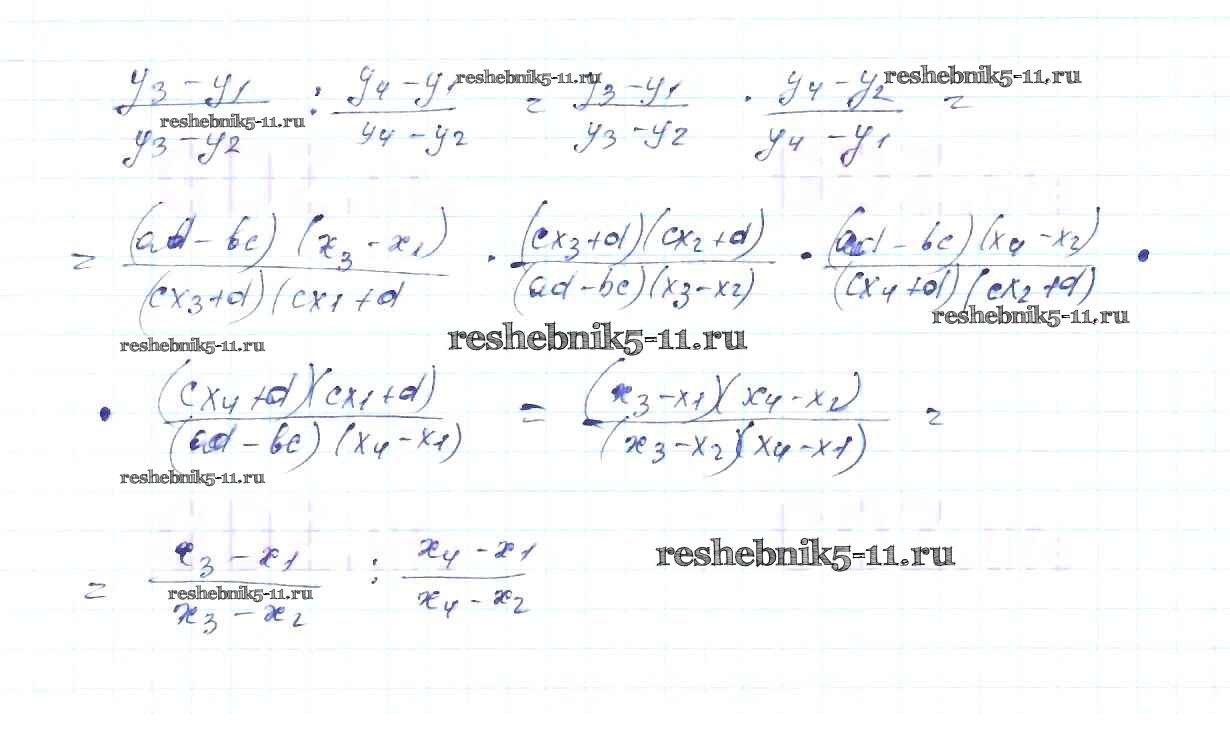 y3 − y1 / y3 − y2 : y4 − y1 / y4 − y2 = y3 − y1 / y3 − y2 · y4 − y2 / y4 − y1 =
reshebnik5-11.ru
reshebnik5-11.ru
reshebnik5-11.ru
= (ad − bc) (x3 − x1) / (cx3 + d) (cx1 + d · (cx3 + d) (cx2 + d) / (ad − bc) (x3 − x2) · (ad − bc) (x4 − x2) / (cx4 + d) (cx2 + d) ·
reshebnik5-11.ru
reshebnik5-11.ru
reshebnik5-11.ru
· (cx4 + d)(cx1 + d) / (ad − bc) (x4 − x1) = (x3 − x1)(x4 − x2) / (x3 − x2)(x4 − x1) =
reshebnik5-11.ru
= x3 − x1 / x3 − x2 : x4 − x1 / x4 − x2
reshebnik5-11.ru
reshebnik5-11.ru